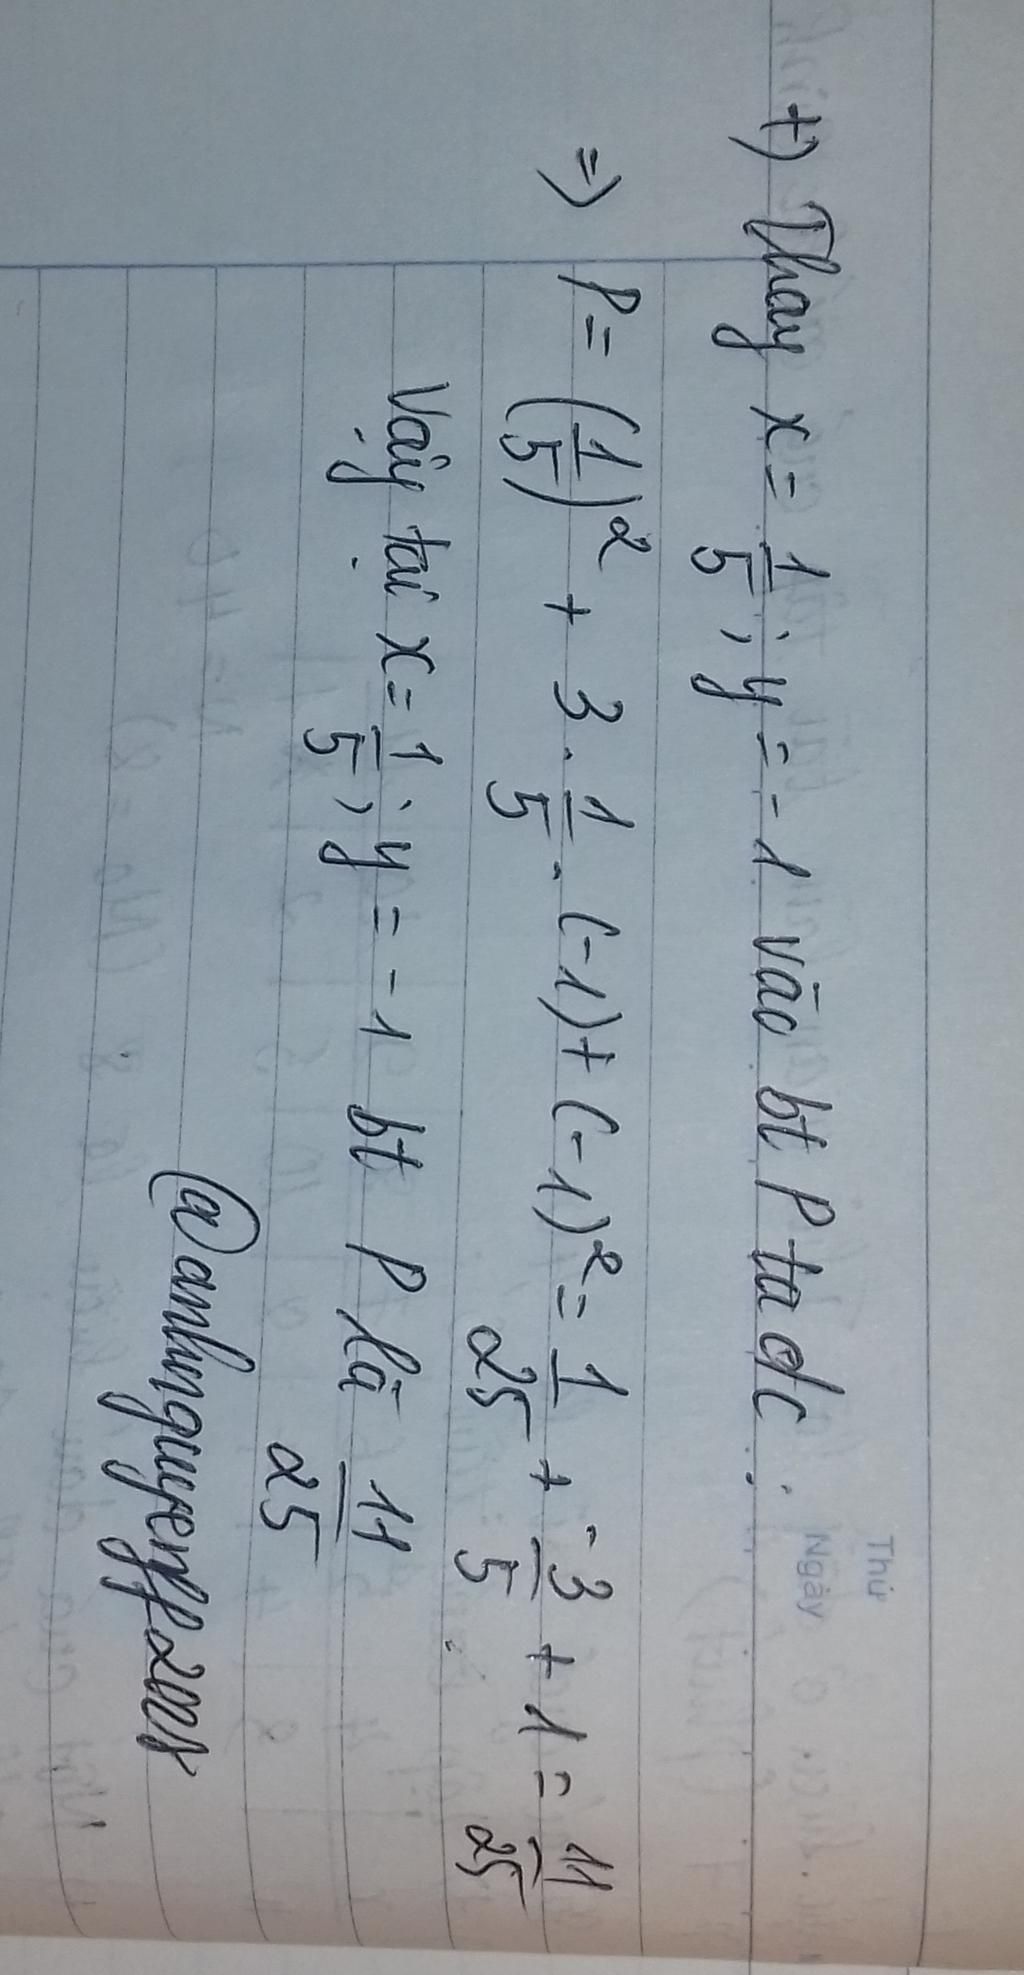 Thứ
Ngày
+) Thay x = 1/5 ; y = -1 vào bt P ta dc :
=> P = (1/5)² + 3 . 1/5 . (-1) + (-1)² = 1/25 + -3/5 + 1 = 11/25
Vậy tại x = 1/5 ; y = -1 bt P là 11/25
@anhnguyenff2008